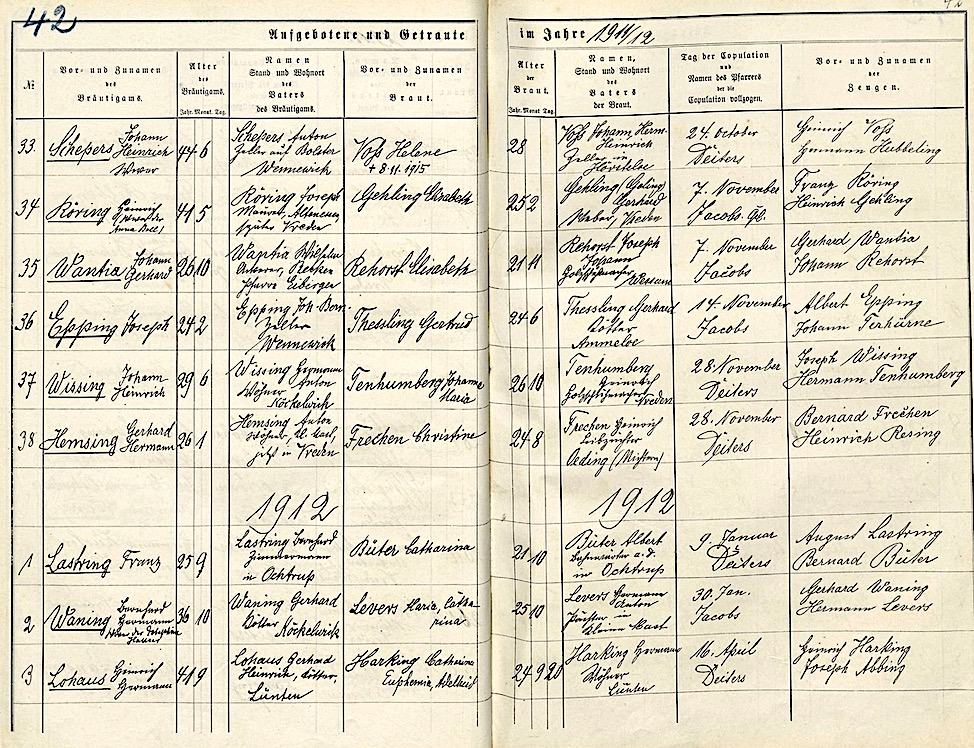 42
Aufgebotene und Getraute
im Jahre 1911/12
№
Vor- und Zunamen
des
Bräutigams.
Alter
des
Bräutigams.
Jahr. Monat. Tag.
Namen
Stand und Wohnort
des
Vaters
des Bräutigams.
Vor- und Zunamen
der
Braut.
Alter
der
Braut.
Jahr. Monat. Tag.
Namen,
Stand und Wohnort
des
Vaters
der Braut.
Tag der Copulation
und
Namen des Pfarrers
der die
Copulation vollzogen.
Vor- und Zunamen
der
Zeugen.
33
Schepers Johann
Heinrich
44 6
Schepers Anton
Zeller auf Bolster
Wennewick
Voß Helene
+ 8.11.1915
28
Voß Johann Herm.
Heinrich
Zeller in
24. October
Deiters
Heinrich Voß
Hermann Hubbeling
34
Röring Heinrich
41 5
Röring Joseph
später Vreden
Gehling Elisabeth
25 2
Gehling (Geling)
Gerhard
Weber, Vreden
7. November
Jacobs
Franz Röring
Heinrich Gehling
35
Wantia Johann
Gerhard
26 10
Wantia Wilhelm
Rehorst Elisabeth
21 11
Rehorst Joseph
Johann
Holzschuhmacher
Wessum
7. November
Jacobs
Gerhard Wantia
Johann Rehorst
36
Epping Joseph
24 2
Epping Joh. Bern.
Zeller
Wennewick
Thessling Gertrud
24 6
Thessling Gerhard
Kötter
Ammeloe
14. November
Jacobs
Albert Epping
Johann Terhürne
37
Wissing Johann
Heinrich
29 6
Wissing Hermann
Anton
Wöhner
Köckelwick
Tenhumberg Johanna
Maria
26 10
Tenhumberg
Heinrich
Holzschuhmacher
Vreden
28 November
Deiters
Joseph Wissing
Hermann Tenhumberg
38
Hemsing Gerhard
Hermann
26 1
Hemsing Anton
Wöhner, Kl. Mast,
jetzt in Vreden
Frechen Christine
24 8
Frechen Heinrich
Leibzüchter
Oeding
28. November
Deiters
Bernard Frechen
Heinrich Resing
1912
1912
1
Lastring Franz
25 9
Lastring Bernhard
Zimmermann
in Ochtrup
Büter Catharina
21 10
Büter Albert
a. d.
in Ochtrup
9. Januar
Deiters
August Lastring
Bernard Büter
2
Waning Bernhard
Hermann
36 10
Waning Gerhard
Kötter
Köckelwick
Levers Maria, Catha
rina
25 10
Levers Hermann
Anton
Pächter in
Kleine Mast
30. Jan.
Jacobs
Gerhard Waning
Hermann Levers
3
Lohaus Heinrich
Hermann
41 9
Lohaus Gerhard
Heinrich, Kötter,
Lünten
Harking Catharina
Euphemia, Adelheid
24 9 20
Harking Hermann
Wöhner
Lünten
16. April
Deiters
Heinrich Harking
Joseph Abbing